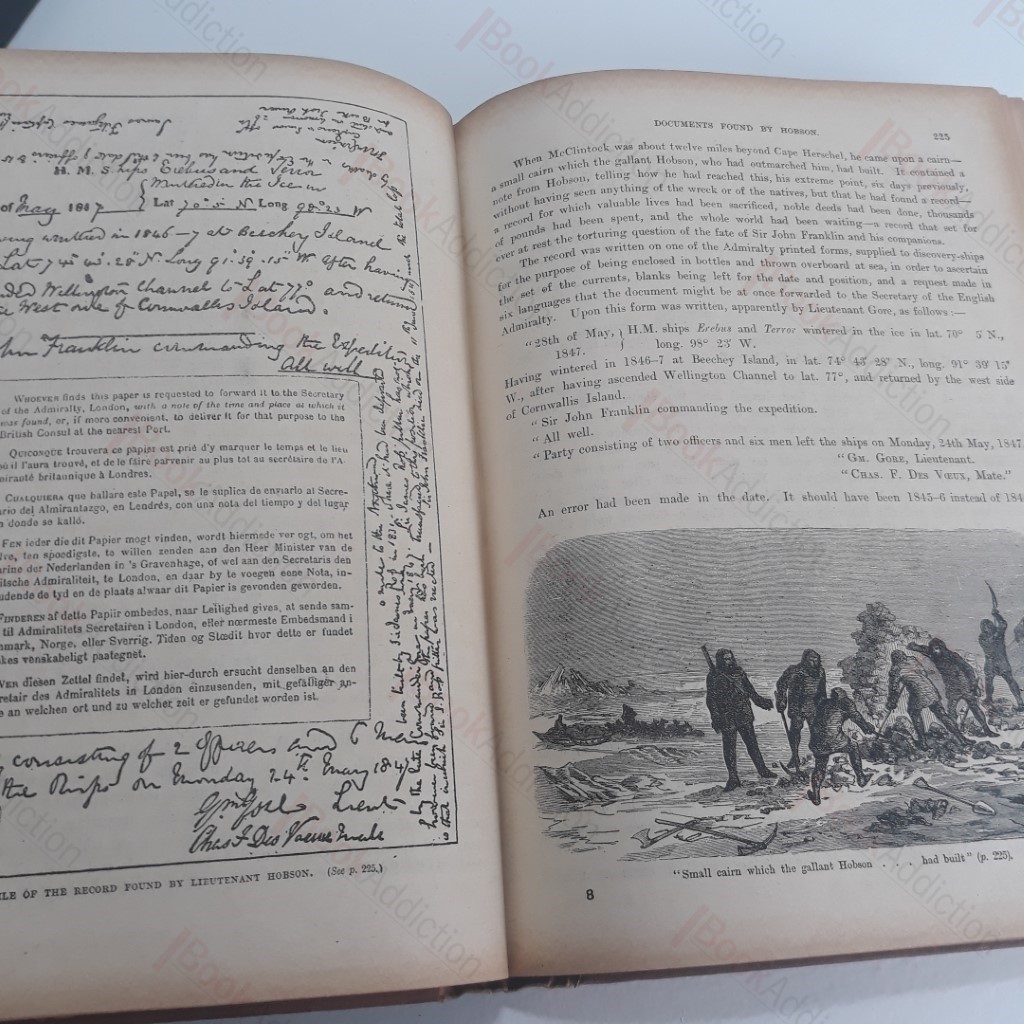 H. M. Ships Erebus and Terror
Wintered in the Ice in
of May 1847 Lat 70° 5' N Long 98° 23' W
wintered in 1846-7 at Beechey Island
Lat 74° 43' 28" N. Long 91° 39' 15" W after having
Wellington Channel to Lat 77° and returned
West side of Cornwallis Island.
Franklin commanding the Expedition
All well
Whoever finds this paper is requested to forward it to the Secretary
of the Admiralty, London, with a note of the time and place at which it
was found, or, if more convenient, to deliver it for that purpose to the
British Consul at the nearest Port.
Quiconque trouvera ce papier est prié d'y marquer le temps et le lieu
où il l'aura trouvé, et de le faire parvenir au plus tot au secrétaire de l'A-
mirauté britannique à Londres.
Cualquiera que hallare este Papel, se le suplica de enviarlo al Secre-
ario del Almirantazgo, en Londrés, con una nota del tiempo y del lugar
n donde se kalló.
Een ieder die dit Papier mogt vinden, wordt hiermede ver ogt, om het
ve, ten spoedigste, te willen zenden aan den Heer Minister van de
arine der Nederlanden in 's Gravenhage, of wel aan den Secretaris den
itsche Admiraliteit, te London, en daar by te voegen eene Nota, in-
udende de tyd en de plaats alwaar dit Papier is gevonden geworden.
Finderen af dette Papiir ombedes, naar Leilighed gives, at sende sam-
til Admiralitets Secretairen i London, eller nœrmeste Embedsmand i
nmark, Norge, eller Sverrig. Tiden og Stœdit hvor dette er fundet
skes venskabeligt paategnet.
Wer diesen Zettel findet, wird hier-durch ersucht denselben an den
retair des Admiralitets in London einzusenden, mit gefälliger an-
e an welchen ort und zu welcher zeit er gefundet worden ist.
consisting of 2 Officers and 6 Men
the Ships on Monday 24th May 1847
Gm Gore Lieut
Chas F Des Voeux Mate
LE OF THE RECORD FOUND BY LIEUTENANT HOBSON. (See p. 225.)
DOCUMENTS FOUND BY HOBSON. 225
When McClintock was about twelve miles beyond Cape Herschel, he came upon a cairn—
a small cairn which the gallant Hobson, who had outmarched him, had built. It contained a
note from Hobson, telling how he had reached this, his extreme point, six days previously,
without having seen anything of the wreck or of the natives, but that he had found a record—
a record for which valuable lives had been sacrificed, noble deeds had been done, thousands
of pounds had been spent, and the whole world had been waiting—a record that set for
ever at rest the torturing question of the fate of Sir John Franklin and his companions.
The record was written on one of the Admiralty printed forms, supplied to discovery-ships
for the purpose of being enclosed in bottles and thrown overboard at sea, in order to ascertain
the set of the currents, blanks being left for the date and position, and a request made in
six languages that the document might be at once forwarded to the Secretary of the English
Admiralty. Upon this form was written, apparently by Lieutenant Gore, as follows:—
"28th of May, } H.M. ships Erebus and Terror wintered in the ice in lat. 70° 5' N.,
1847. } long. 98° 23' W.
Having wintered in 1846-7 at Beechey Island, in lat. 74° 43' 28" N., long. 91° 39' 15"
W., after having ascended Wellington Channel to lat. 77°, and returned by the west side
of Cornwallis Island.
"Sir John Franklin commanding the expedition.
"All well.
"Party consisting of two officers and six men left the ships on Monday, 24th May, 1847
"Gm. Gore, Lieutenant.
"Chas. F. Des Vœux, Mate."
An error had been made in the date. It should have been 1845-6 instead of 184
"Small cairn which the gallant Hobson . . . had built" (p. 225).
8